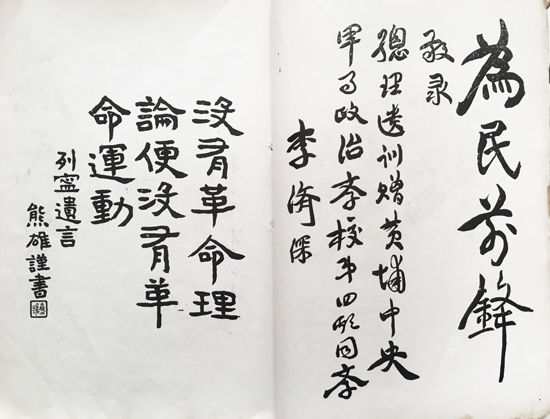 為民前鋒
敬录
總理遺訓贈黄埔中央
軍事政治学校第四期同学
李濟深
没有革命理
論便没有革
命運動
列寧遺言
熊雄謹書